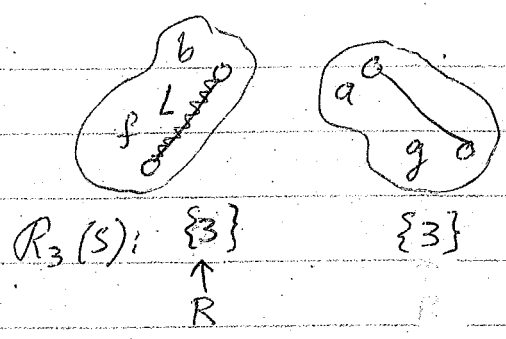 b
L
f
a
g
R₃(S): {3} {3}
↑
R